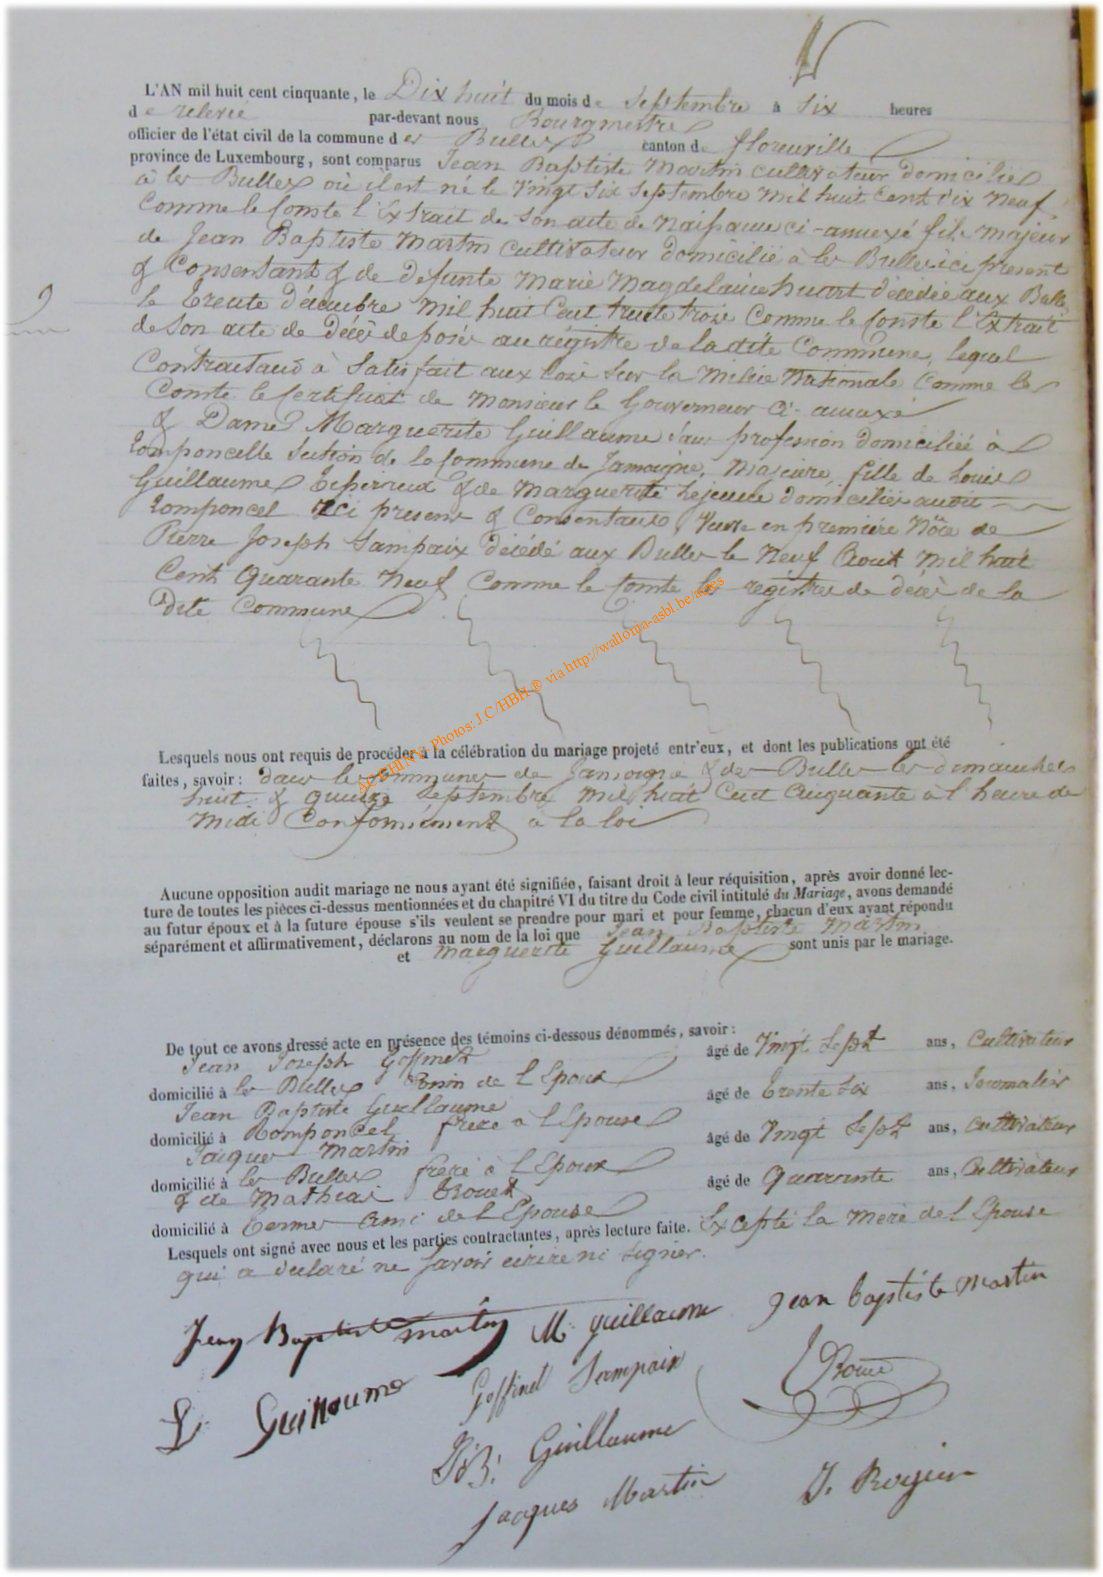 L'AN mil huit cent cinquante, le Dix huit du mois de Septembre à Six heures
de relevée par-devant nous Bourgmestre
officier de l'état civil de la commune des Bulles canton de florenville
province de Luxembourg, sont comparus Jean Baptiste Martin cultivateur domicilié
à les Bulles où il est né le Vingt Six Septembre mil huit Cent dix Neuf
Comme le Conste l'Extrait de Son acte de Naissance ci-annexé fils majeur
de Jean Baptiste Martin Cultivateur domicilié à les Bulles ici present
& Consentant & de defunte Marie Magdelaine huart décédée aux Bulles
le Trente Décembre Mil huit Cent trente trois Comme le Conste l'Extrait
de Son acte de Décès déposé au régistre de la dite Commune, lequel
Contractant à Satisfait aux loix Sur la Milice Nationale Comme le
Conste le Certificat de Monsieur le Gouverneur Ci-annexé
& Dame Marguerite Guillaume Sans profession domiciliée à
Romponcelle Section de la Commune de Jamoigne, Majeure, fille de Louis
Guillaume & de Marguerite Lejeune domiciliés audit
Romponcel ici present & Consentans, Veuve en première Nôce de
Pierre Joseph Sampaix décédé aux Bulles le Neuf Aout Mil huit
Cent Quarante Neuf Comme le Conste les régistres de décès de la
Dite Commune
ACCHINY Photos: J.C/HBH ® via http://wallonia-asbl.be/actes
Lesquels nous ont requis de procéder à la célébration du mariage projeté entr'eux, et dont les publications ont été
faites, savoir: dans les Communes de Jamoigne & des Bulles les dimanches
huit & quinze Septembre Mil huit Cent Cinquante à l'heure de
Midi Conformément à la loi
Aucune opposition audit mariage ne nous ayant été signifiée, faisant droit à leur réquisition, après avoir donné lec-
ture de toutes les pièces ci-dessus mentionnées et du chapitre VI du titre du Code civil intitulé du Mariage, avons demandé
au futur époux et à la future épouse s'ils veulent se prendre pour mari et pour femme, chacun d'eux ayant répondu
séparément et affirmativement, déclarons au nom de la loi que Jean Baptiste Martin
et Marguerite Guillaume sont unis par le mariage.
De tout ce avons dressé acte en présence des témoins ci-dessous dénommés, savoir:
Jean Joseph Goffinet âgé de Vingt Sept ans, Cultivateur
domicilié à les Bulles Cousin de l'Epoux
Jean Baptiste Guillaume âgé de Trente Six ans, Journalier
domicilié à Romponcel frère à l'Epouse
Jacques Martin âgé de Vingt Sept ans, Cultivateur
domicilié à les Bulles frère à l'Epoux
& de Mathias âgé de Quarante ans, Cultivateur
domicilié à Termes Ami de l'Epouse
Lesquels ont signé avec nous et les parties contractantes, après lecture faite. Excepté la Mère de l'Epouse
qui a déclaré ne Savoir écrire ni Signer.
Jean Baptiste Martin M. guillaume Jean baptiste Martin
L Guillaume Goffinet Sampaix
J.B. Guillaume
Jacques Martin